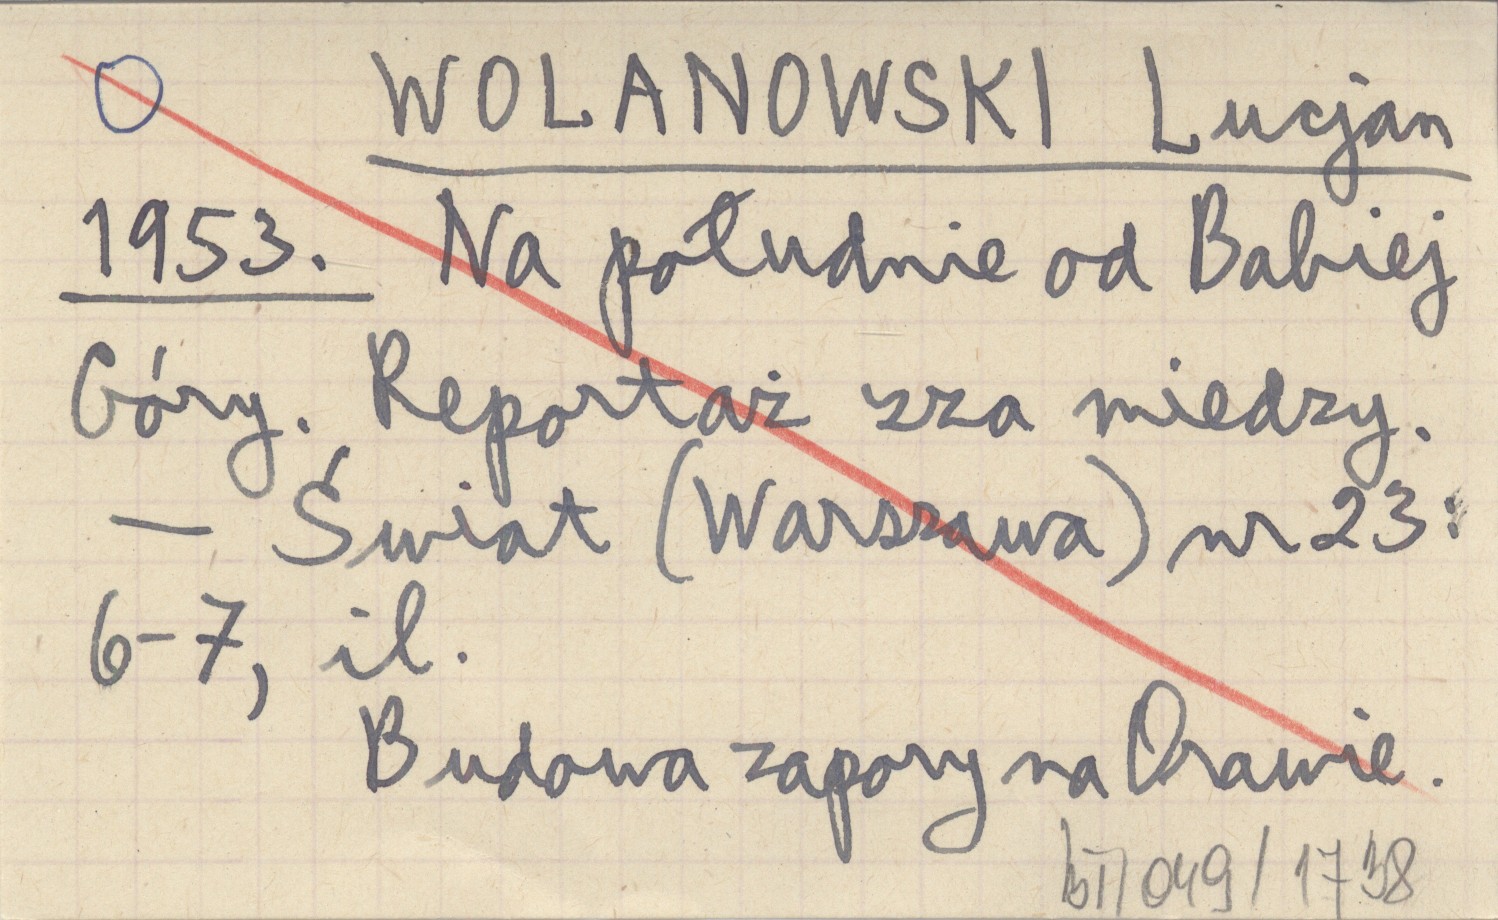 WOLANOWSKI Lucjan
1953. Na południe od Babiej
Góry. Reportaż zza miedzy.
— Świat (Warszawa) nr 23:
6-7, il.
Budowa zapory na Orawie.
BT/049/1738